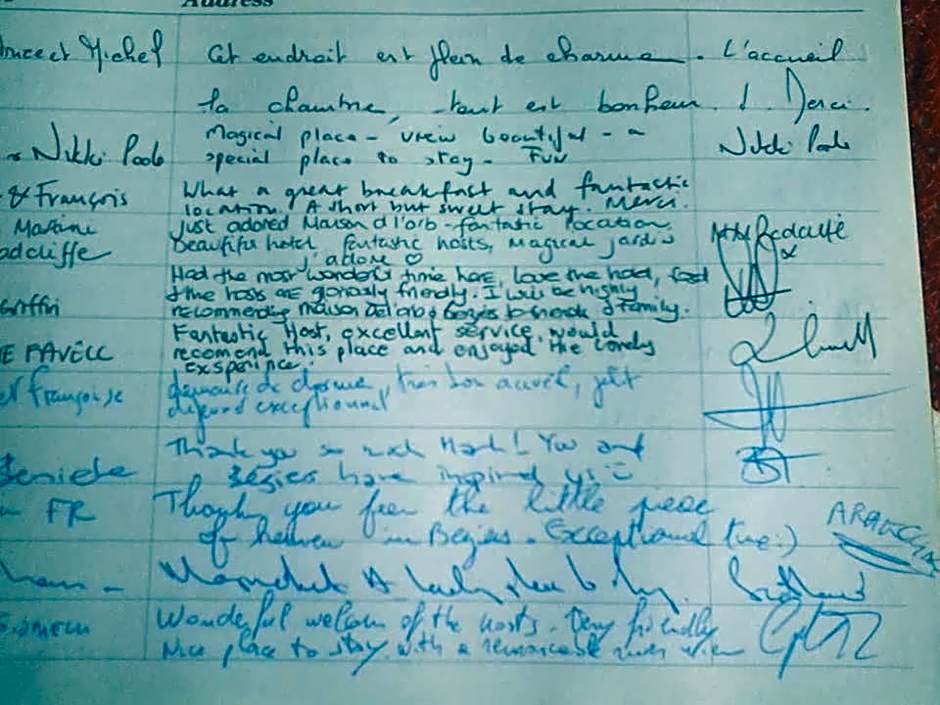 Address
Michel Cet endroit est plein de charme. L'accueil
la chambre, tout est bonheur. ! Merci.
Nikki Poole Magical place - view beautiful - a Nikki Poole
special place to stay - Fun
& François What a great breakfast and fantastic
location. A short but sweet stay. Merci.
Maxine Just adored Maison d l'orb - fantastic location,
adcliffe Beautiful hotel, fantastic hosts, magical jardin
j'adore ♡
Griffin Had the most wonderful time here, love the hotel, food
& the hosts are friendly. I will be highly
recommending Maison De l'orb & Beziers to friends & family.
Fantastic Host, excellent service, would
recomend this place and enjoyed the lovely
exsperince.
et Françoise demeure de charme, très bon accueil, petit
exceptionnel
Thank you so much Mark! You and
Béziers have inspired us
FR Thank you for the little piece
of heaven in Beziers. Exceptional time :)
A lovely place to Scotland
Wonderful welcom of the hosts. Very friendly
Nice place to stay with a remarcable river view